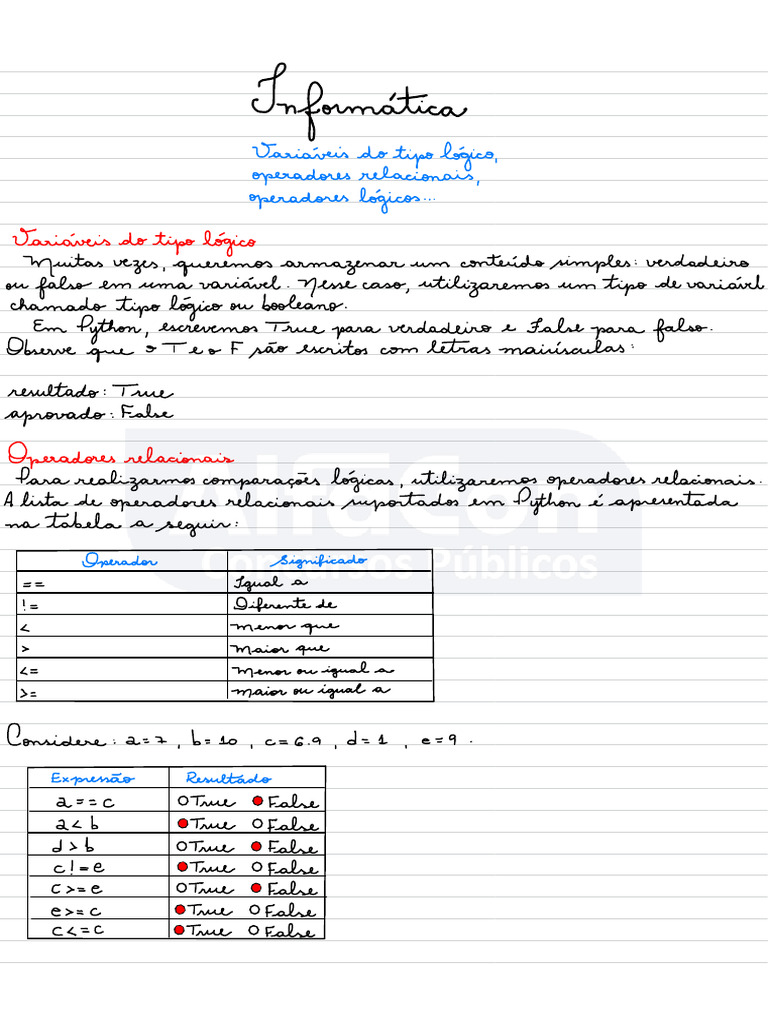 Informática
Variáveis do tipo lógico,
operadores relacionais,
operadores lógicos...
Variáveis do tipo lógico
Muitas vezes, queremos armazenar um conteúdo simples: verdadeiro
ou falso em uma variável. Nesse caso, utilizaremos um tipo de variável
chamado tipo lógico ou booleano.
Em Python, escrevemos True para verdadeiro e False para falso.
Observe que o T e o F são escritos com letras maiúsculas:
resultado: True
aprovado: False
Operadores relacionais
Para realizarmos comparações lógicas, utilizaremos operadores relacionais.
A lista de operadores relacionais suportados em Python é apresentada
na tabela a seguir:
AlfaCon
Concursos Públicos
Operador Significado
== Igual a
!= Diferente de
< Menor que
> Maior que
<= Menor ou igual a
>= Maior ou igual a
Considere: a=7, b=10, c=6.9, d=1, e=9.
Expressão Resultado
a==c True False
a<b True False
d>b True False
c!=e True False
c>=e True False
e>=c True False
c<=c True False